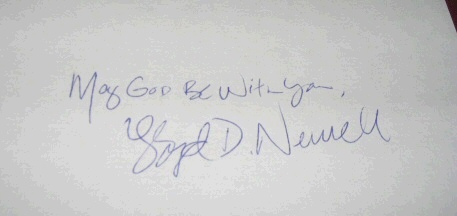 May God Be With You,
Lloyd D. Newell